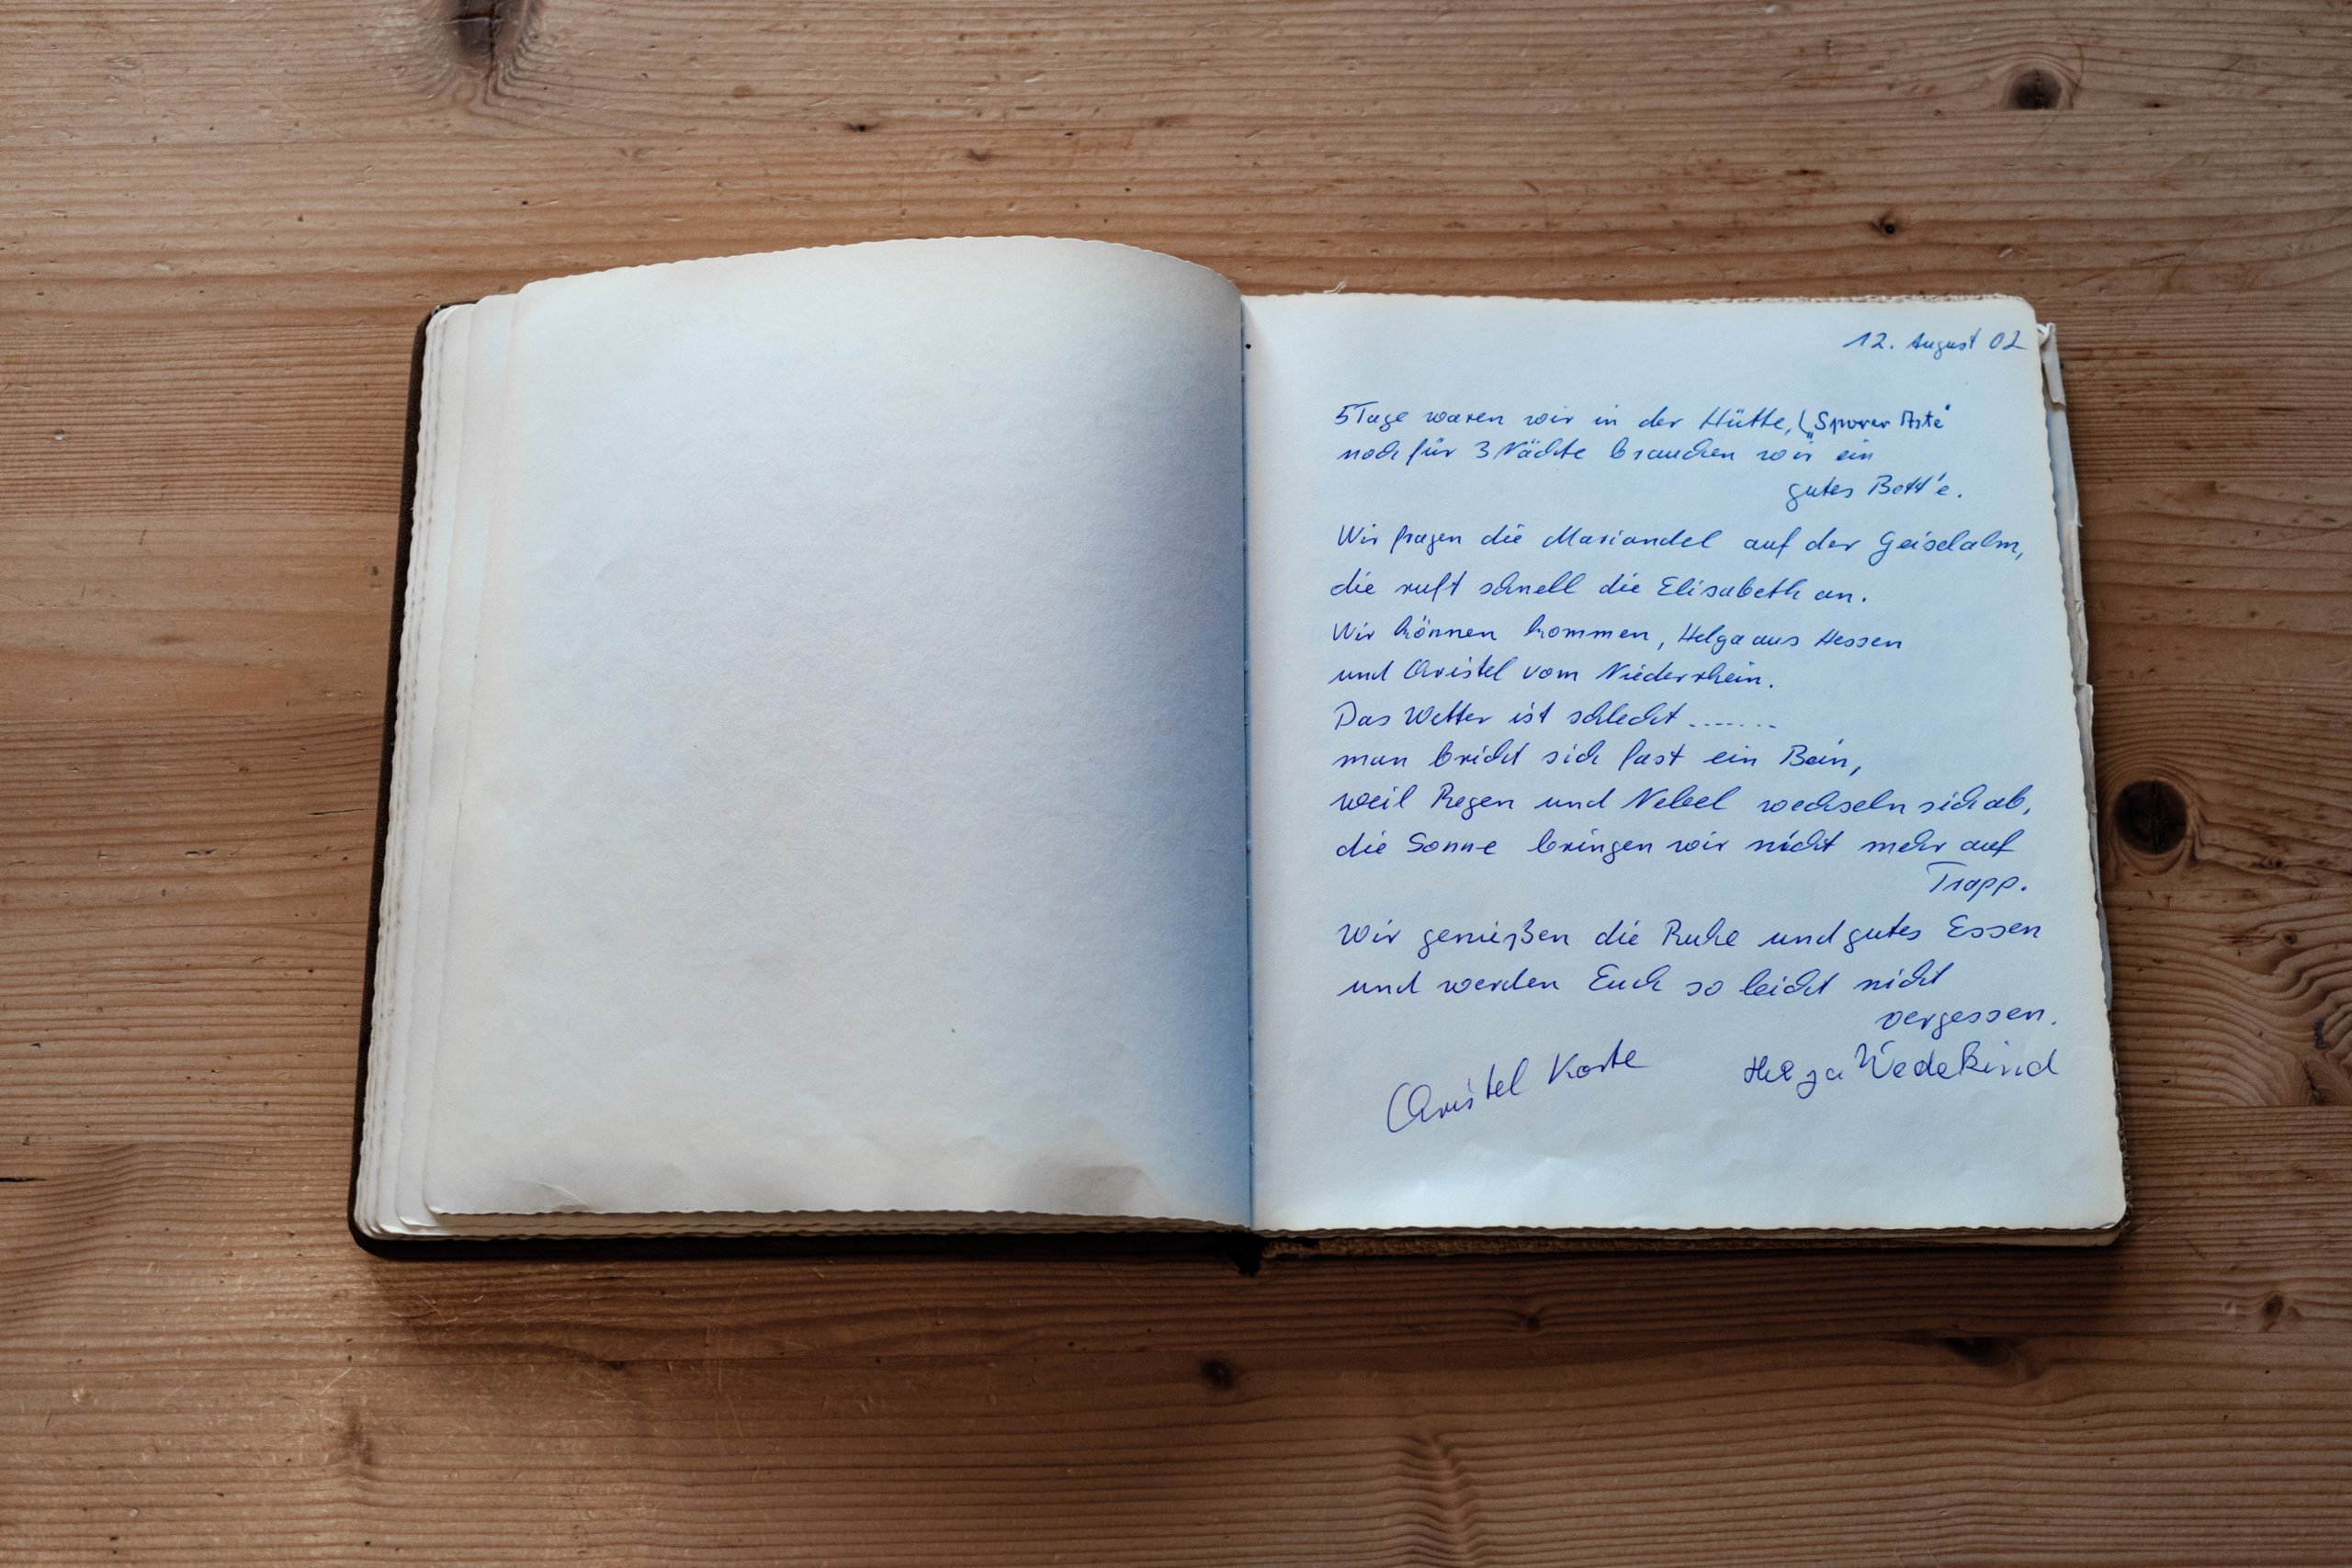 12. August 02
5 Tage waren wir in der Hütte,
noch für 3 Nächte brauchen wir ein
gutes Bett'e.
Wir fragen die Mariandel auf der Geiselalm,
die ruft schnell die Elisabeth an.
Wir können kommen, Helga aus Hessen
und Christel vom Niederrhein.
Das Wetter ist schlecht.......
man bricht sich fast ein Bein,
weil Regen und Nebel wechseln sich ab,
die Sonne bringen wir nicht mehr auf
Trapp.
Wir genießen die Ruhe und gutes Essen
und werden Euch so leicht nicht
vergessen.
Christel Korte Helga Wedekind